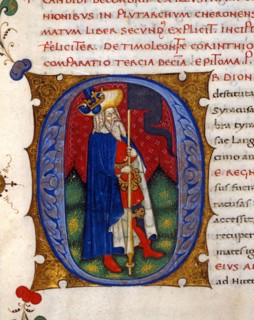 CANDIDI
NIONIBUS IN PLUTARCHVM CHERONENS
MATVM LIBER SECVNDꝰ EXPLICIT. INCIPIT
FELICITER. DE TIMOLEONTE CORINTHIO
COMPARATIO TERCIA DECIA EPITOMA. P
R DION
destituta
Syracusa
bra tyra
sae Lang
cimo an
E REGN
sus fuera
racusas
accessit
recuper
mates
EIVS AL
ad Hicet